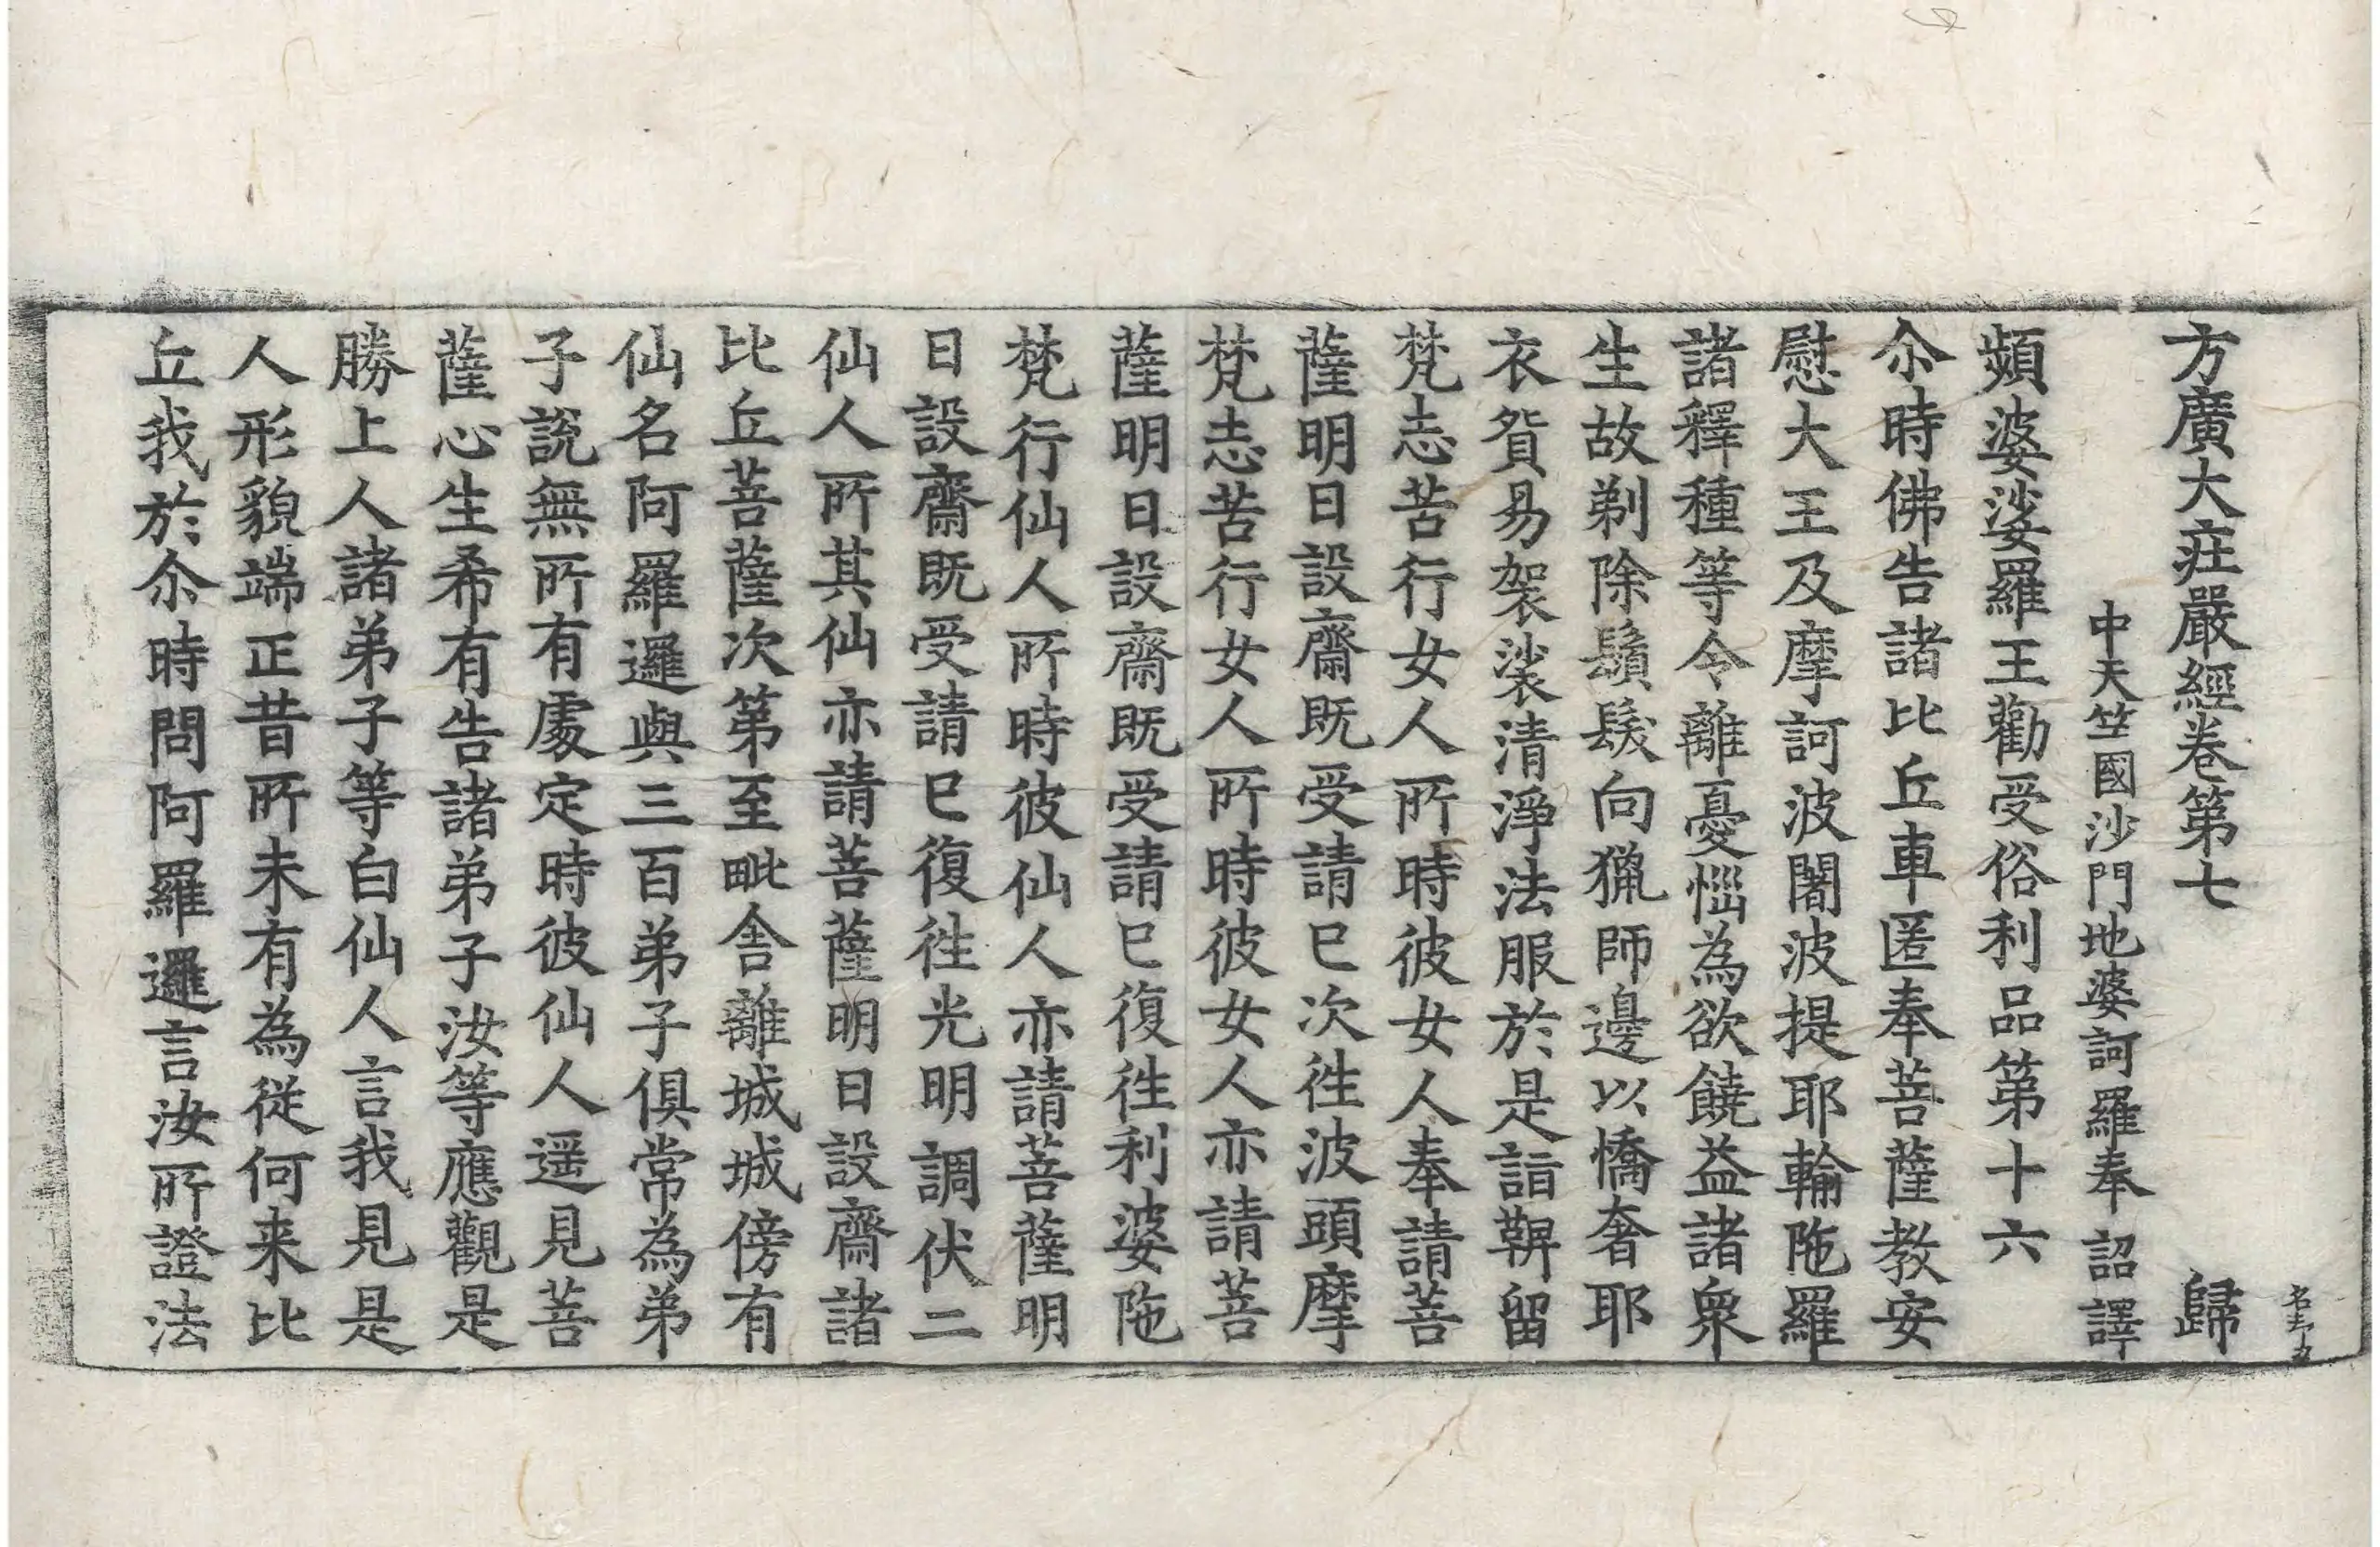 方廣大庄嚴經卷第七 歸
中天竺國沙門地婆訶羅奉 詔譯
頻婆娑羅王勸受俗利品第十六
尒時佛告諸比丘車匿奉菩薩教安
慰大王及摩訶波闍波提耶輸陁羅
諸釋種等令離憂惱為欲饒益諸衆
生故剃除鬚髮向獵師邊以憍奢耶
衣貿易袈裟清淨法服於是詣鞞留
梵志苦行女人所時彼女人奉請菩
薩明日設齋既受請已次徃波頭摩
梵志苦行女人所時彼女人亦請菩
薩明日設齋既受請已復徃利婆陁
梵行仙人所時彼仙人亦請菩薩明
日設齋既受請已復徃光明調伏二
仙人所其仙亦請菩薩明日設齋諸
比丘菩薩次第至毗舍離城城傍有
仙名阿羅邏與三百弟子俱常為弟
子說無所有處定時彼仙人遥見菩
薩心生希有告諸弟子汝等應觀是
勝上人諸弟子等白仙人言我見是
人形貌端正昔所未有為從何来比
丘我於尒時問阿羅邏言汝所證法